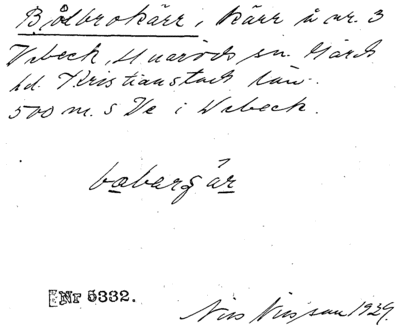 Bjälbrokärr, kärr å nr. 3
Vebeck, Huaröds sn. Gärds
hd. Kristianstads län.
500 m. S Ve i Vebeck.
Nr 5332.
Nils Nilsson 1929.